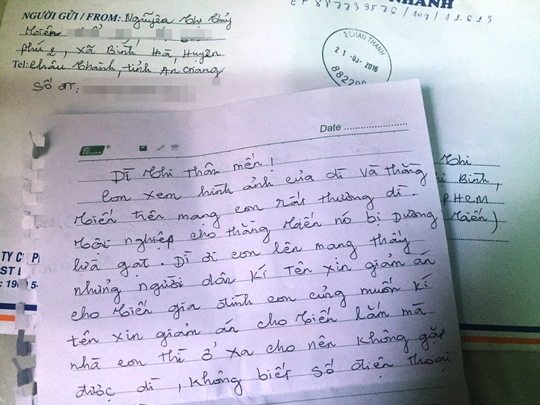 NGƯỜI GỬI / FROM: Nguyễn Thị Thủy
NHANH
EP 887733576
phú 2, xã Bình Hà, Huyện
Tel: Châu Thành, tỉnh An Giang
Số ĐT:
CHAU THANH
2016
Date
Dì Thi thân mến!
Con xem hình ảnh của dì và thằng
Miến trên mạng con rất thương dì.
Tội nghiệp cho thằng Miến nó bị Dương
lừa gạt. Dì ơi con lên mạng thấy
những người dân kí tên xin giảm án
cho Miến gia đình con cũng muốn kí
tên xin giảm án cho Miến lắm mà
nhà con thì ở xa cho nên không gặp
được dì, không biết số điện thoại
Thi
Bình,
HCM
Miến)
TY CP